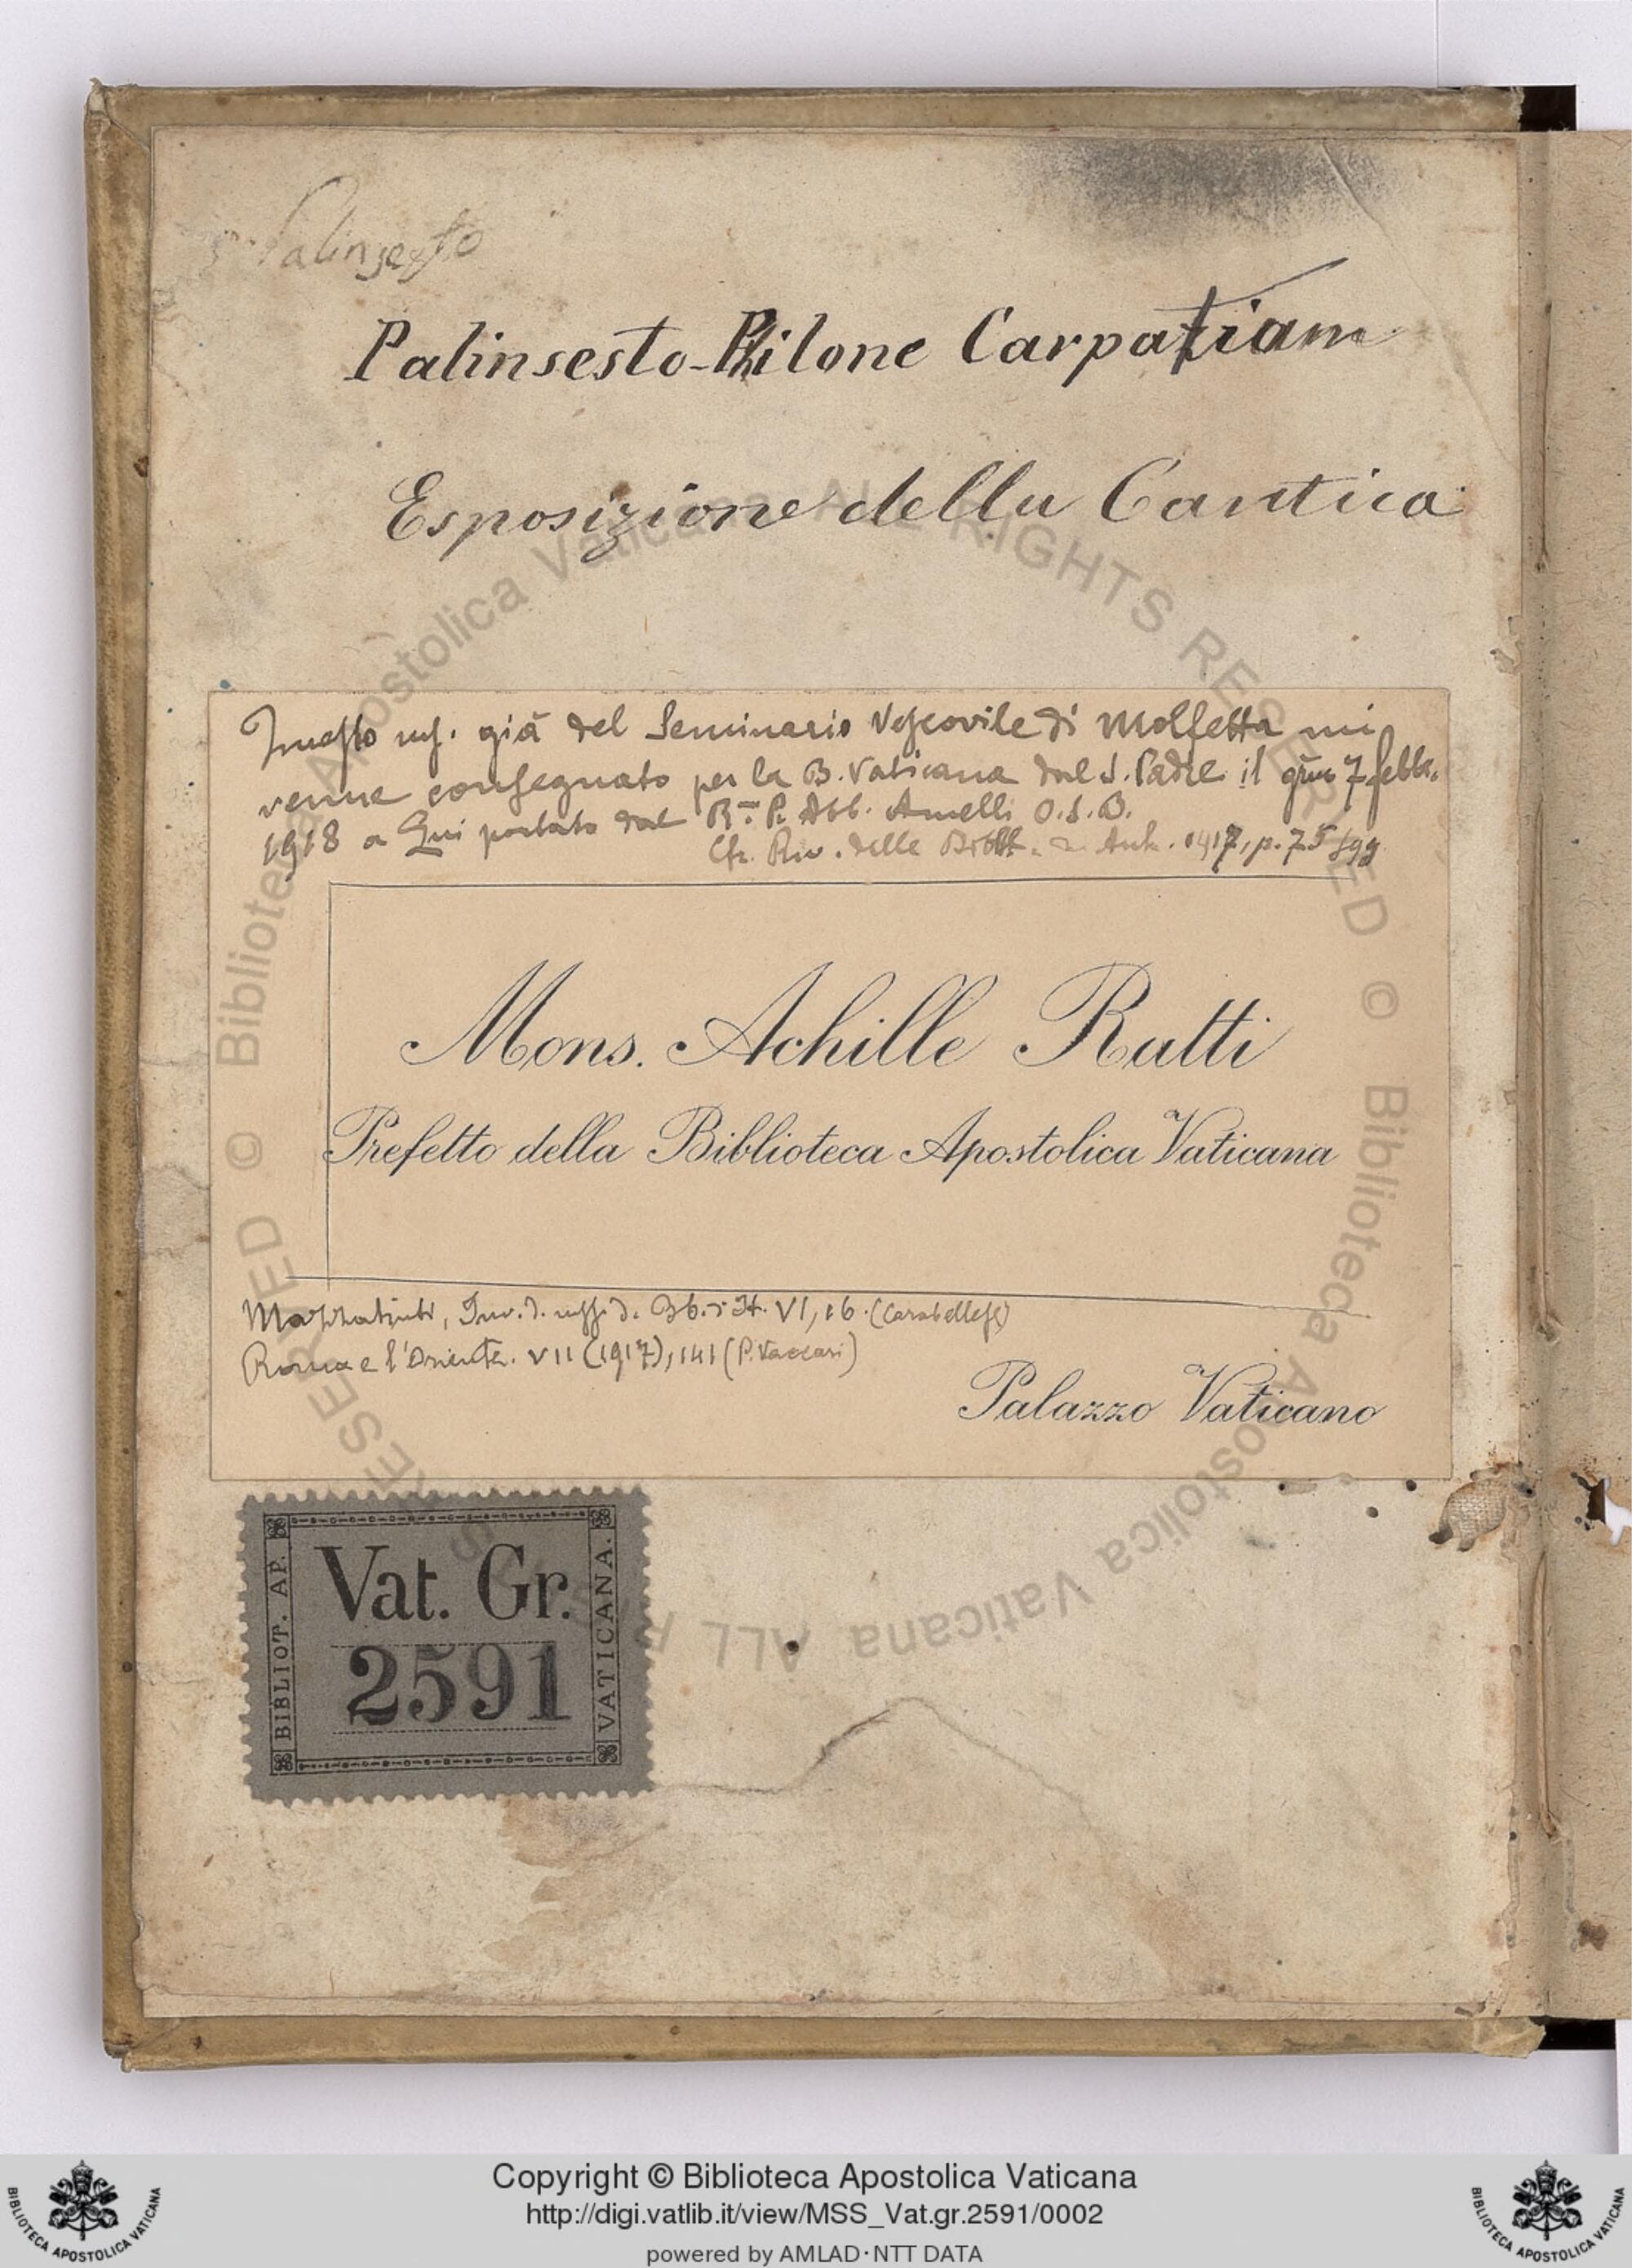 Palinsesto
Palinsesto-Philone Carpatiam
Esposizione della Cantica
Questo ms. già del Seminario Vescovile di Molfetta mi
venne consegnato per la B. Vaticana dal S. Padre il 7 febbr.
1918 e Qui portato dal R.mo P. Abb. Amelli O.S.B.
Cfr. Riv. delle Bibl. e Arch. 1917, p. 75 sgg
Mons. Achille Ratti
Prefetto della Biblioteca Apostolica Vaticana
Mazzatinti, Inv. d. mss. d. Bb. d' It. VI, 16. (Carabellese)
Roma e l'Oriente. VII (1917), 141 (P. Vaccari)
Palazzo Vaticano
BIBLIOT. AP. VATICANA.
Vat. Gr.
2591
© Biblioteca Apostolica Vaticana ALL RIGHTS RESERVED © Biblioteca Apostolica Vaticana ALL RIGHTS RESERVED
Copyright © Biblioteca Apostolica Vaticana
http://digi.vatlib.it/view/MSS_Vat.gr.2591/0002
powered by AMLAD·NTT DATA
BIBLIOTECA APOSTOLICA VATICANA
BIBLIOTECA APOSTOLICA VATICANA